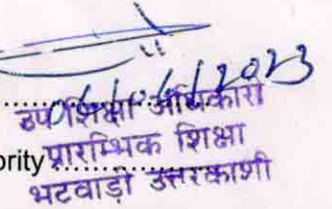 2023
उप शिक्षा अधिकारी
ority प्रारम्भिक शिक्षा
भटवाड़ी उत्तरकाशी